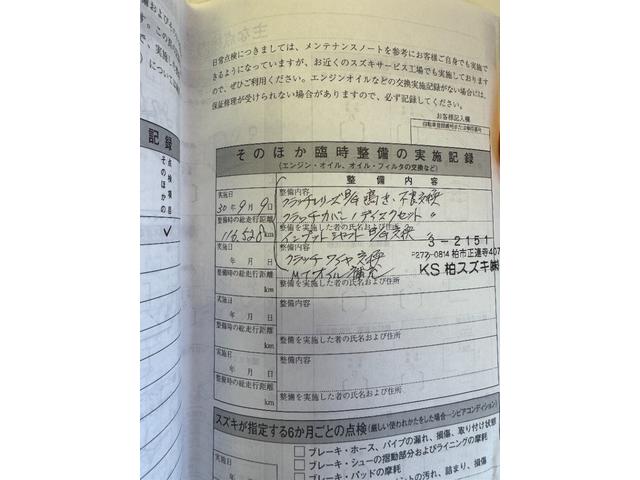 日常点検につきましては、メンテナンスノートを参考にお客様ご自身でも実施で
きるようになっていますが、お近くのスズキサービス工場でも実施しております
ので、ぜひご利用ください。エンジンオイルなどの交換実施記録がない場合には、
保証修理が受けられない場合がありますので、必ず記録してください。
お客様記入欄
自動車登録番号または車両番号
そのほか臨時整備の実施記録
(エンジン・オイル、オイル・フィルタの交換など)
整備内容
実施日
30年9月9日
整備時の総走行距離
116,528km
整備内容
クラッチレリーズB/G鳴き、不良交換
クラッチカバー/ディスクセット 〃
整備を実施した者の氏名および住所
インプットシャフトB/G交換
クラッチワイヤ交換
MTオイル補充
3-2151
〒277-0814 柏市正連寺407
KS柏スズキ㈱
実施日
年 月 日
整備時の総走行距離
km
整備内容
整備を実施した者の氏名および住所
実施日
年 月 日
整備時の総走行距離
km
整備内容
整備を実施した者の氏名および住所
実施日
年 月 日
整備時の総走行距離
km
整備内容
整備を実施した者の氏名および住所
スズキが指定する6か月ごとの点検(厳しい使われかたをした場合―シビアコンディション)
ブレーキ・ホース、パイプの漏れ、損傷、取り付け状態
ブレーキ・シューの摺動部分およびライニングの摩耗
ブレーキ・パッドの摩耗
メントの汚れ、詰まり、損傷
記録
点検項目
そのほかの
✓